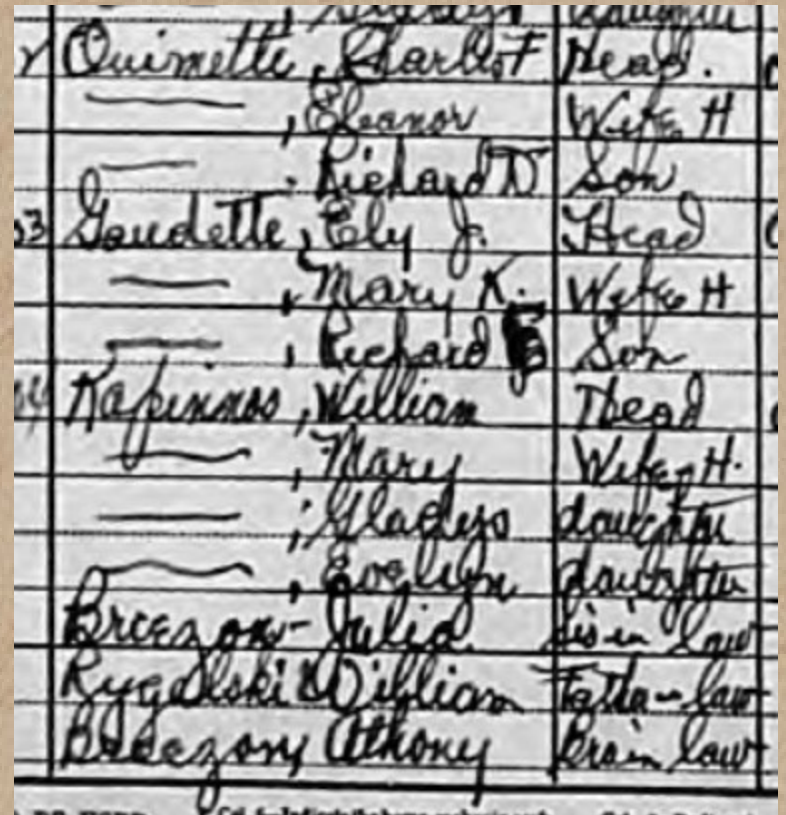 daughter
Ouimette, Charles F Head.
—, Eleanor Wife H
—, Richard D Son
53 Gaudette, Ely J. Head
—, Mary K. Wife H
—, Richard Son
Kapinnos, William Head
—, Mary Wife H.
—, Gladys daughter
—, Evelyn daughter
Breezon- Julia sis in law
Rygalski William Fatha-law
Breezony Athony Bro in law